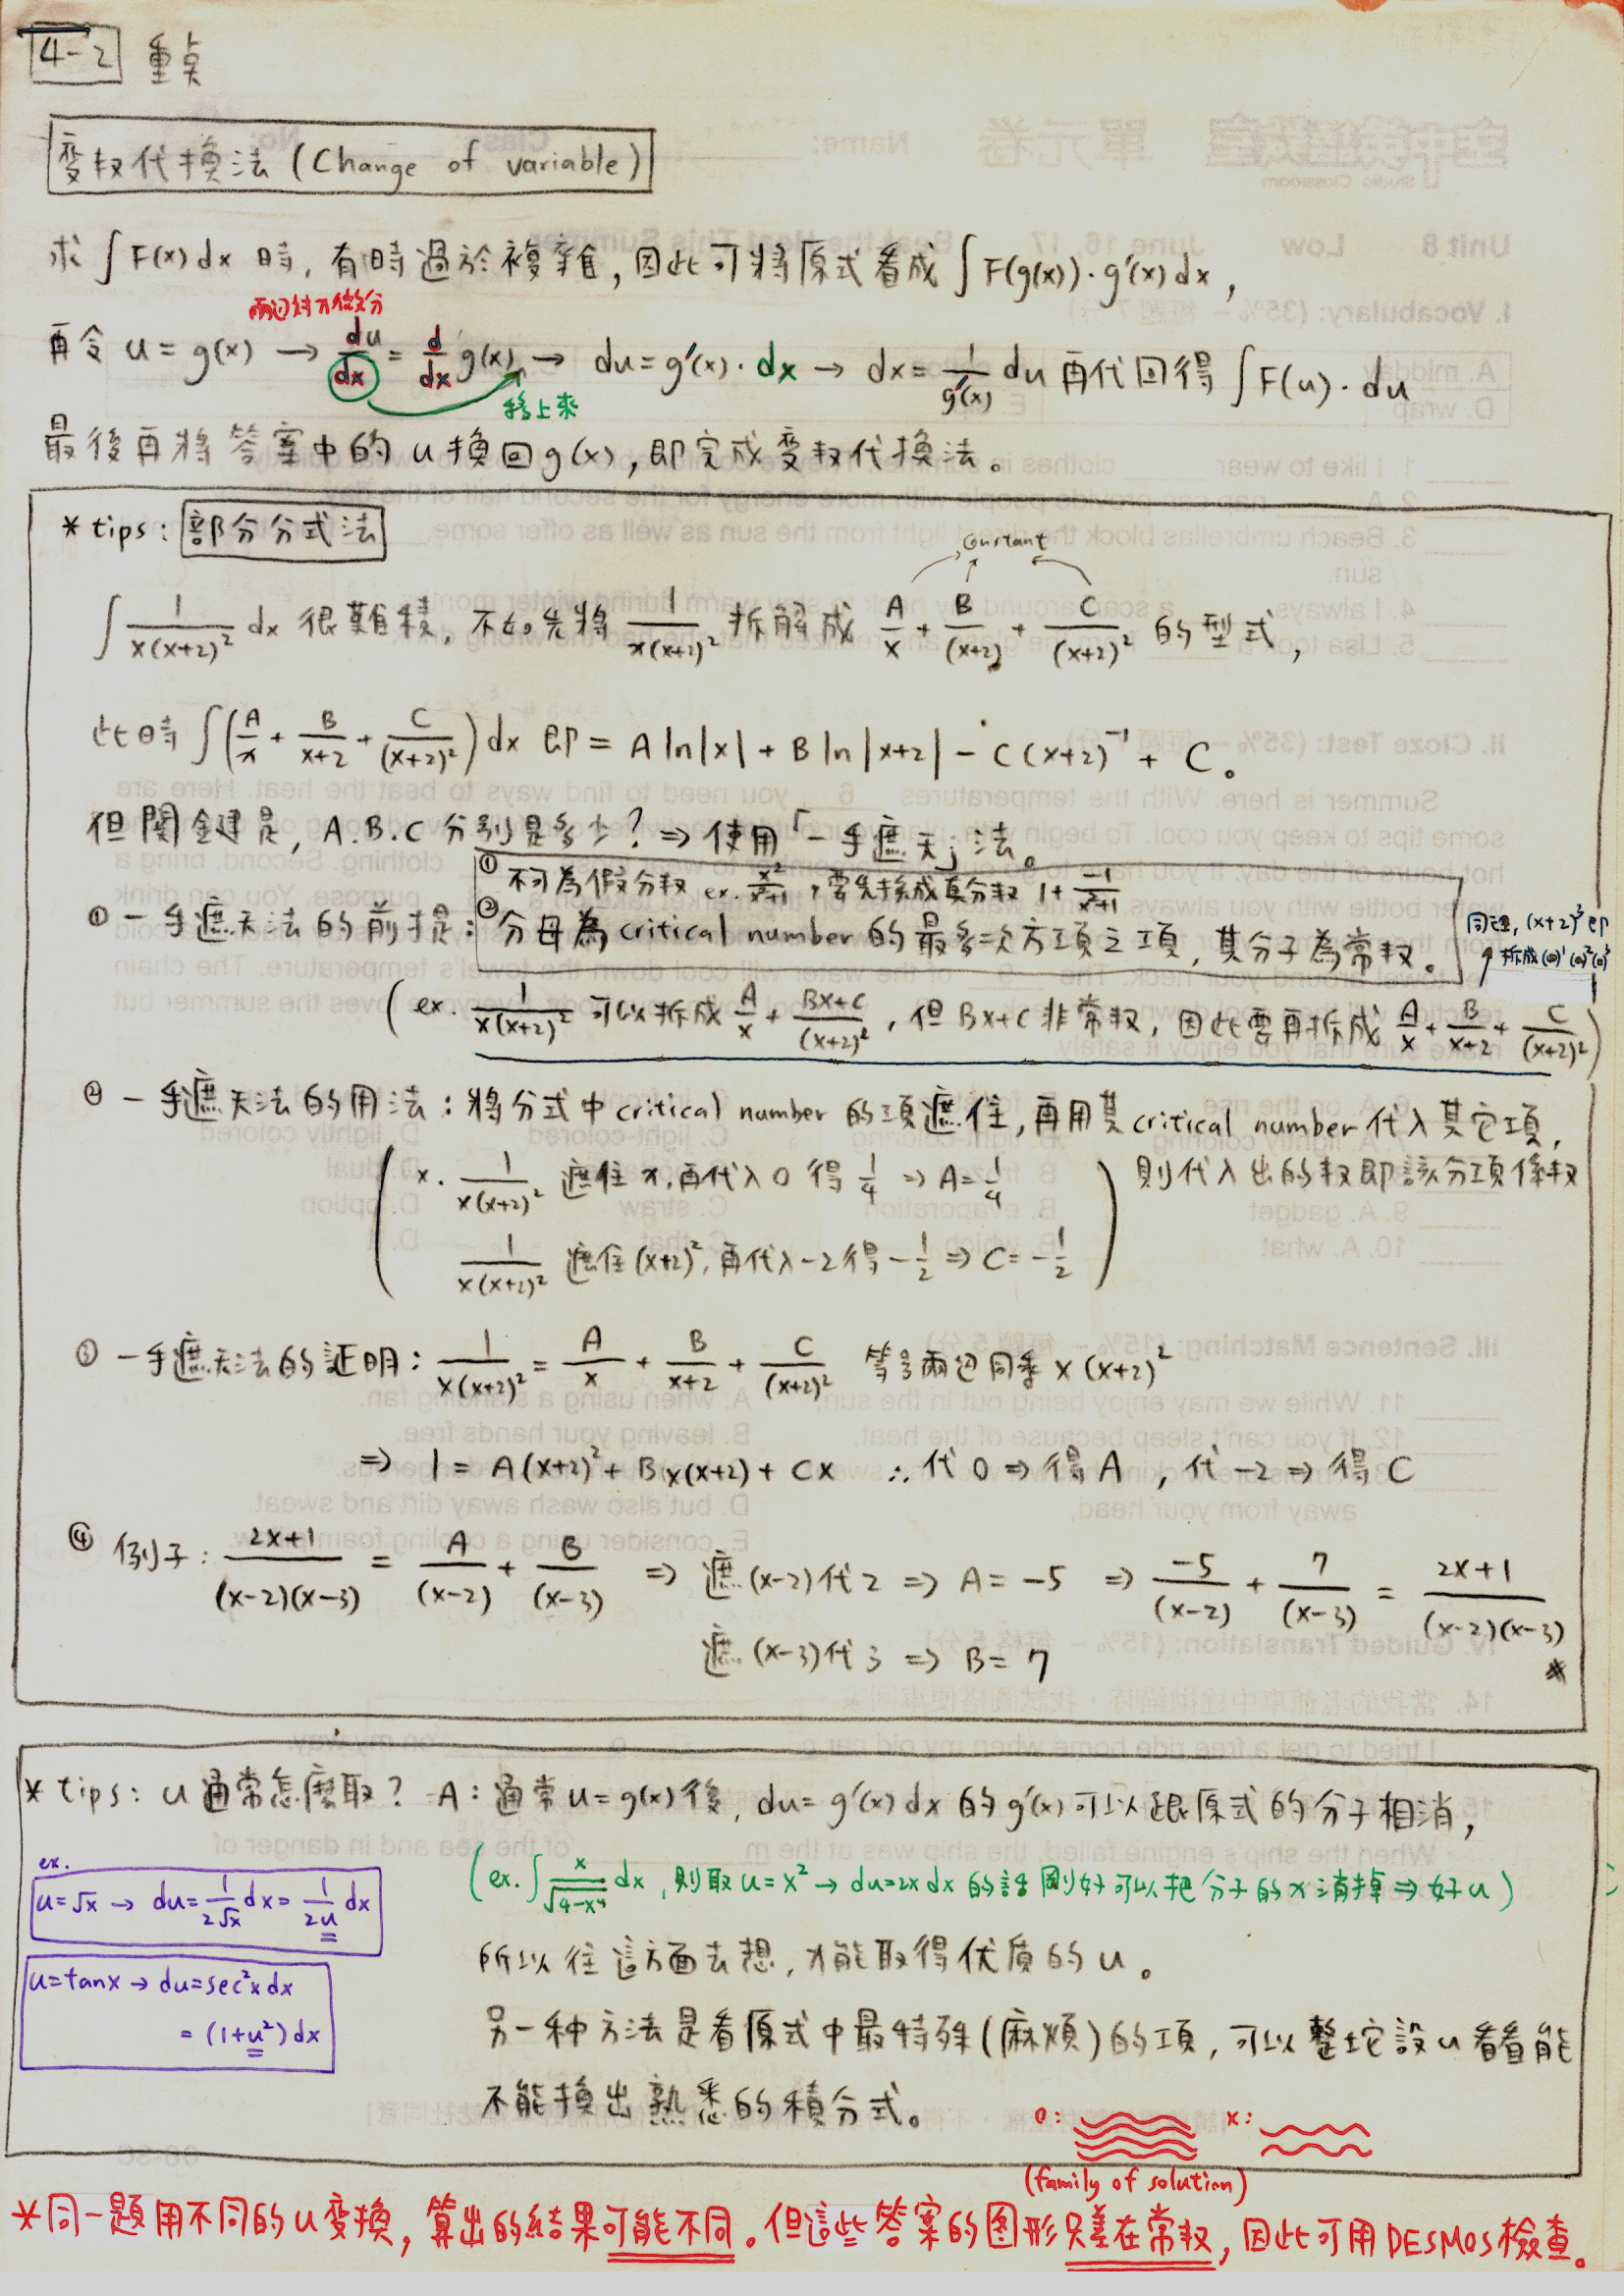 4-2 重点
変枚代換法 (Change of variable)
求 ∫ F(x) dx 時, 有時過於複雜, 因此可將原式看成 ∫ F(g(x)) · g'(x) dx ,
兩边対x做微分
再令 u = g(x) → du/dx = d/dx g(x) → du = g'(x) · dx → dx = 1/g'(x) du 再代回得 ∫ F(u) · du
移上來
最後再將答案中的 u 換回 g(x), 即完成変枚代換法。
* tips : 部分分式法
Constant
∫ 1/x(x+2)² dx 很難積, 不如先將 1/x(x+2)² 拆解成 A/x + B/(x+2) + C/(x+2)² 的型式,
此時 ∫ (A/x + B/x+2 + C/(x+2)²) dx 即 = A ln|x| + B ln|x+2| - C(x+2)⁻¹ + C。
但関鍵是, A.B.C 分別是多少? ⇒ 使用「一手遮天」法。
① 一手遮天法的前提:
① 不可為假分枚 ex. x²/x²+1 , 要先換成真分枚 1 + -1/x²+1
② 分母為 critical number 的最多一次方項之項, 其分子為常枚。
同理, (x+2)³ 即
拆成 (o)¹ (o)² (o)³
(ex. 1/x(x+2)² 可以拆成 A/x + Bx+C/(x+2)² , 但 Bx+C 非常枚, 因此要再拆成 A/x + B/x+2 + C/(x+2)²)
② 一手遮天法的用法: 將分式中 critical number 的項遮住, 再用其 critical number 代入其它項,
則代入出的枚即該分項係枚
x. 1/x(x+2)² 遮住 x, 再代入 0 得 1/4 ⇒ A = 1/4
1/x(x+2)² 遮住 (x+2)², 再代入 -2 得 -1/2 ⇒ C = -1/2
③ 一手遮天法的証明: 1/x(x+2)² = A/x + B/x+2 + C/(x+2)² 等号兩边同乘 x(x+2)²
⇒ 1 = A(x+2)² + Bx(x+2) + Cx ∴ 代 0 ⇒ 得 A , 代 -2 ⇒ 得 C
④ 例子: 2x+1/(x-2)(x-3) = A/(x-2) + B/(x-3) ⇒ 遮 (x-2) 代 2 ⇒ A = -5 ⇒ -5/(x-2) + 7/(x-3) = 2x+1/(x-2)(x-3) *
遮 (x-3) 代 3 ⇒ B = 7
* tips: u 通常怎麼取? A: 通常 u = g(x) 後, du = g'(x) dx 的 g'(x) 可以跟原式的分子相消,
(ex. ∫ x/√4-x⁴ dx, 則取 u = x² → du = 2x dx 的話 剛好可以把分子的 x 消掉 ⇒ 好 u)
ex.
u = √x → du = 1/2√x dx = 1/2u dx
u = tanx → du = sec²x dx
= (1+u²) dx
所以往這方面去想, 才能取得优质的 u。
另一种方法是看原式中最特殊(麻煩)的項, 可以整坨設 u 看看能
不能換出熟悉的積分式。
o: x:
(family of solution)
*同一題用不同的 u 変換, 算出的結果可能不同。但這些答案的图形只差在常枚, 因此可用 DESMOS 檢查。